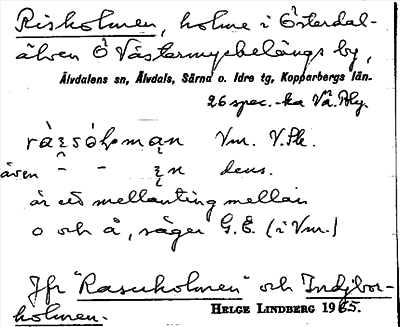 Risholmen, holme i Österdal-
älven Ö Västermyckelängs by,
Älvdalens sn, Älvdals, Särna o. Idre tg, Kopparbergs län.
26 spec.-ka Vä.
Vm. V.
även - - n dens.
är ett mellanting mellan
o och å, säger G.E. (i Vm.)
Jfr "Rasuholmen" och Indjbor-
holmen.
HELGE LINDBERG 1965.